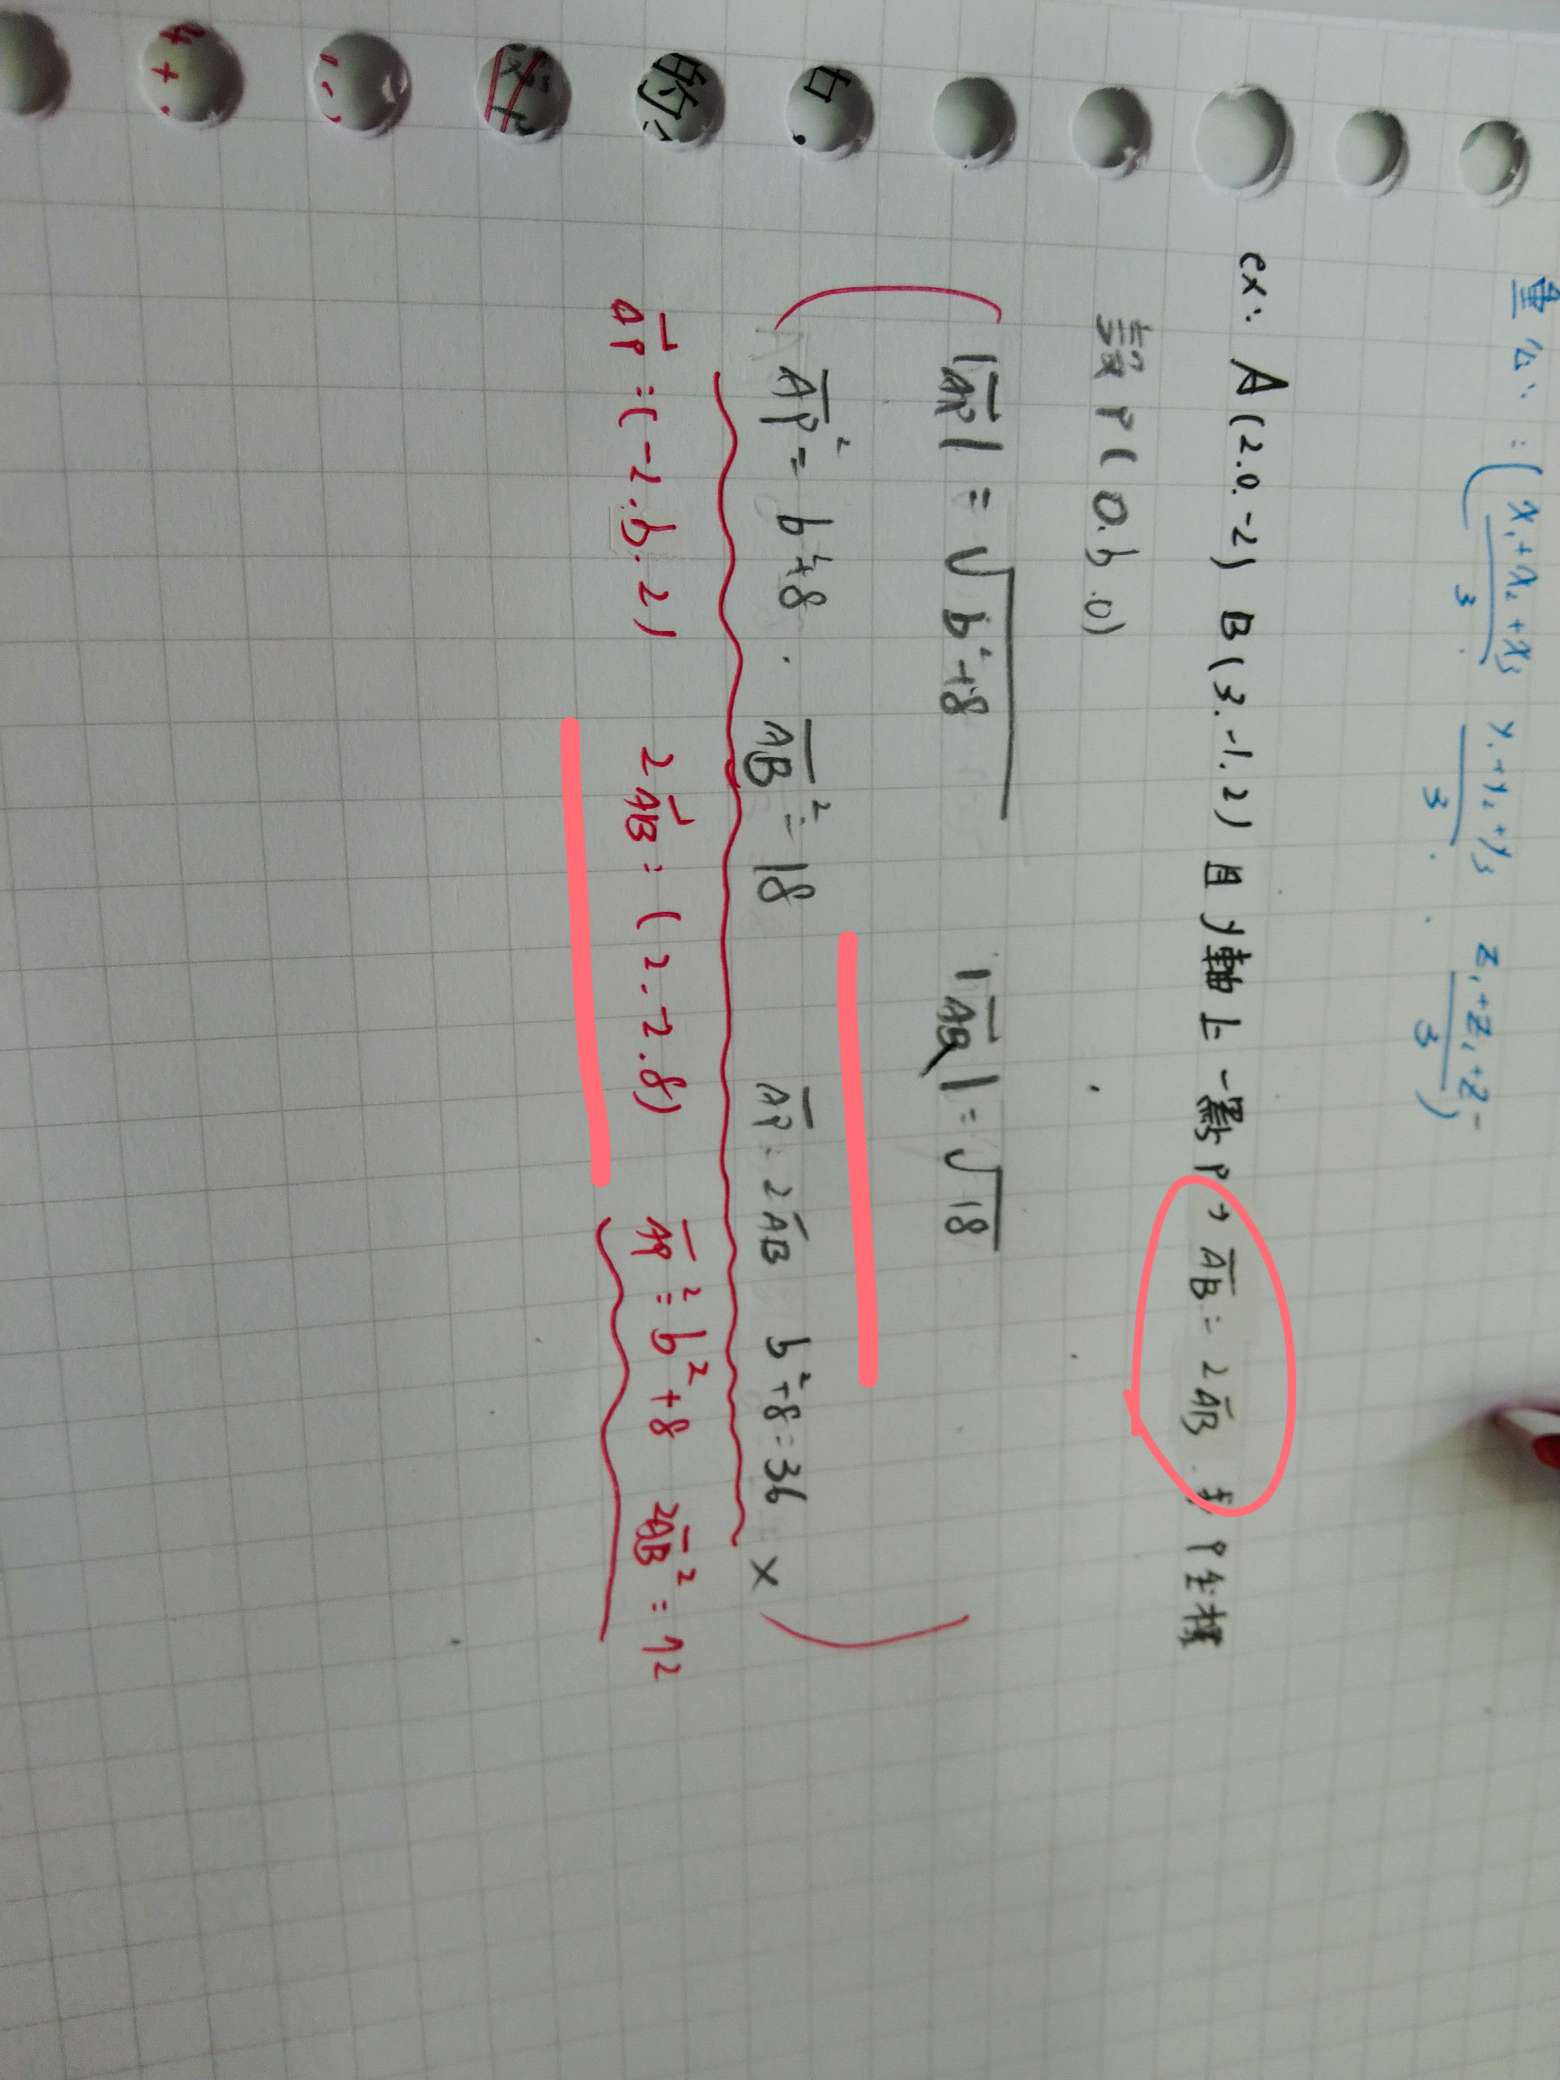 重心: (x₁+x₂+x₃/3, y₁+y₂+y₃/3, z₁+z₂+z₃/3)
ex: A(2.0.-2) B(3.-1.2) 且y軸上一點P → A̅B̅=2A̅B̅. 求P坐標
設P(0.b.0)
|AP| = √b²+8 |AB| = √18
A̅P̅²= b²+8. A̅B̅²=18 A̅P̅=2A̅B̅ b²+8=36 ×
AP⃗=(-2.b.2) 2AB⃗=(2.-2.8) A̅P̅²=b²+8 2A̅B̅²=72